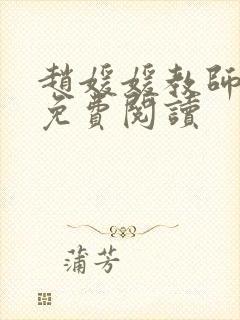 趙媛媛教師
免費閱讀
蒲芳